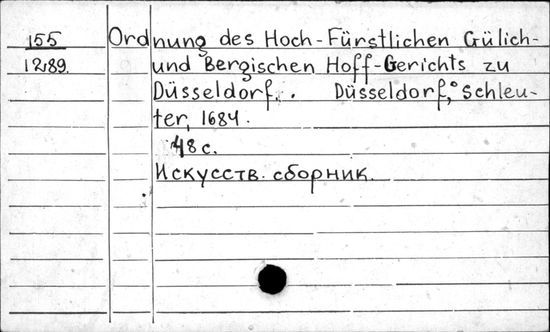 155 Ordnung des Hoch-Fürstlichen Gülich-
1289. und Bergischen Hoff-Gerichts zu
Düsseldorf.. Düsseldorf, Schleu-
ter, 1684.
48 с.
Искусств. сборник.